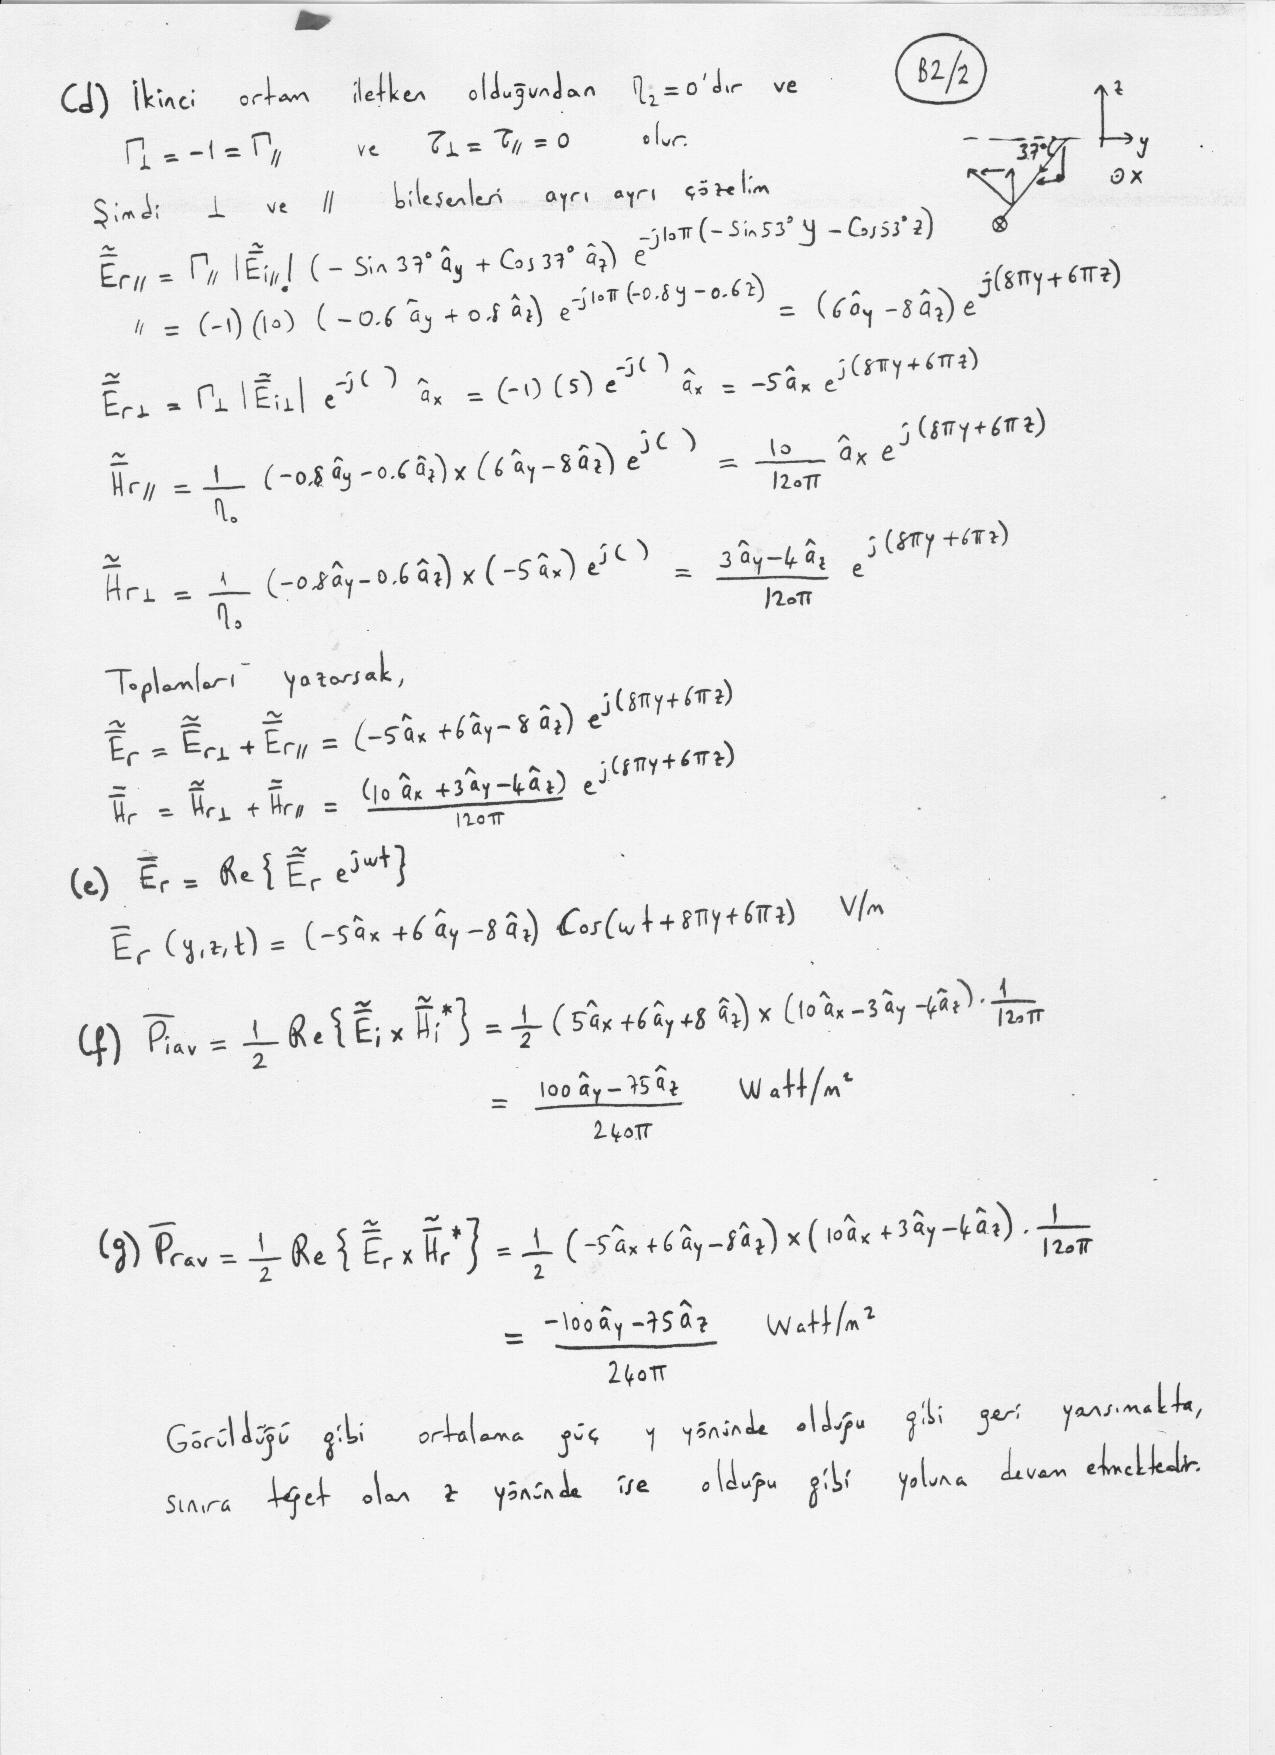 B2/2
(d) İkinci ortam iletken olduğundan η₂=0'dır ve
Γ⊥ = -1 = Γ// ve τ⊥ = τ// = 0 olur.
z
y
x
37°
Şimdi ⊥ ve // bileşenleri ayrı ayrı çözelim
Ẽr// = Γ// |Ẽi//| (-Sin37° ây + Cos37° âz) e^-j10π(-Sin53°y - Cos53°z)
" = (-1)(10) (-0.6 ây + 0.8 âz) e^-j10π(-0.8y-0.6z) = (6ây-8âz) e^j(8πy+6πz)
Ẽr⊥ = Γ⊥ |Ẽi⊥| e^-j( ) âx = (-1)(5) e^-j( ) âx = -5âx e^j(8πy+6πz)
H̃r// = 1/η₀ (-0.8ây-0.6âz)×(6ây-8âz) e^j( ) = 10/120π âx e^j(8πy+6πz)
H̃r⊥ = 1/η₀ (-0.8ây-0.6âz)×(-5âx) e^j( ) = (3ây-4âz)/120π e^j(8πy+6πz)
Toplamları yazarsak,
Ẽr = Ẽr⊥ + Ẽr// = (-5âx+6ây-8âz) e^j(8πy+6πz)
H̃r = H̃r⊥ + H̃r// = (10âx+3ây-4âz)/120π e^j(8πy+6πz)
(e) Ēr = Re{Ẽr e^jwt}
Ēr(y,z,t) = (-5âx+6ây-8âz) Cos(wt+8πy+6πz) V/m
(f) P̄iav = 1/2 Re{Ẽi×H̃i*} = 1/2 (5âx+6ây+8âz)×(10âx-3ây-4âz)·1/120π
= (100ây-75âz)/240π Watt/m²
(g) P̄rav = 1/2 Re{Ẽr×H̃r*} = 1/2 (-5âx+6ây-8âz)×(10âx+3ây-4âz)·1/120π
= (-100ây-75âz)/240π Watt/m²
Görüldüğü gibi ortalama güç y yönünde olduğu gibi geri yansımakta,
sınıra teğet olan z yönünde ise olduğu gibi yoluna devam etmektedir.